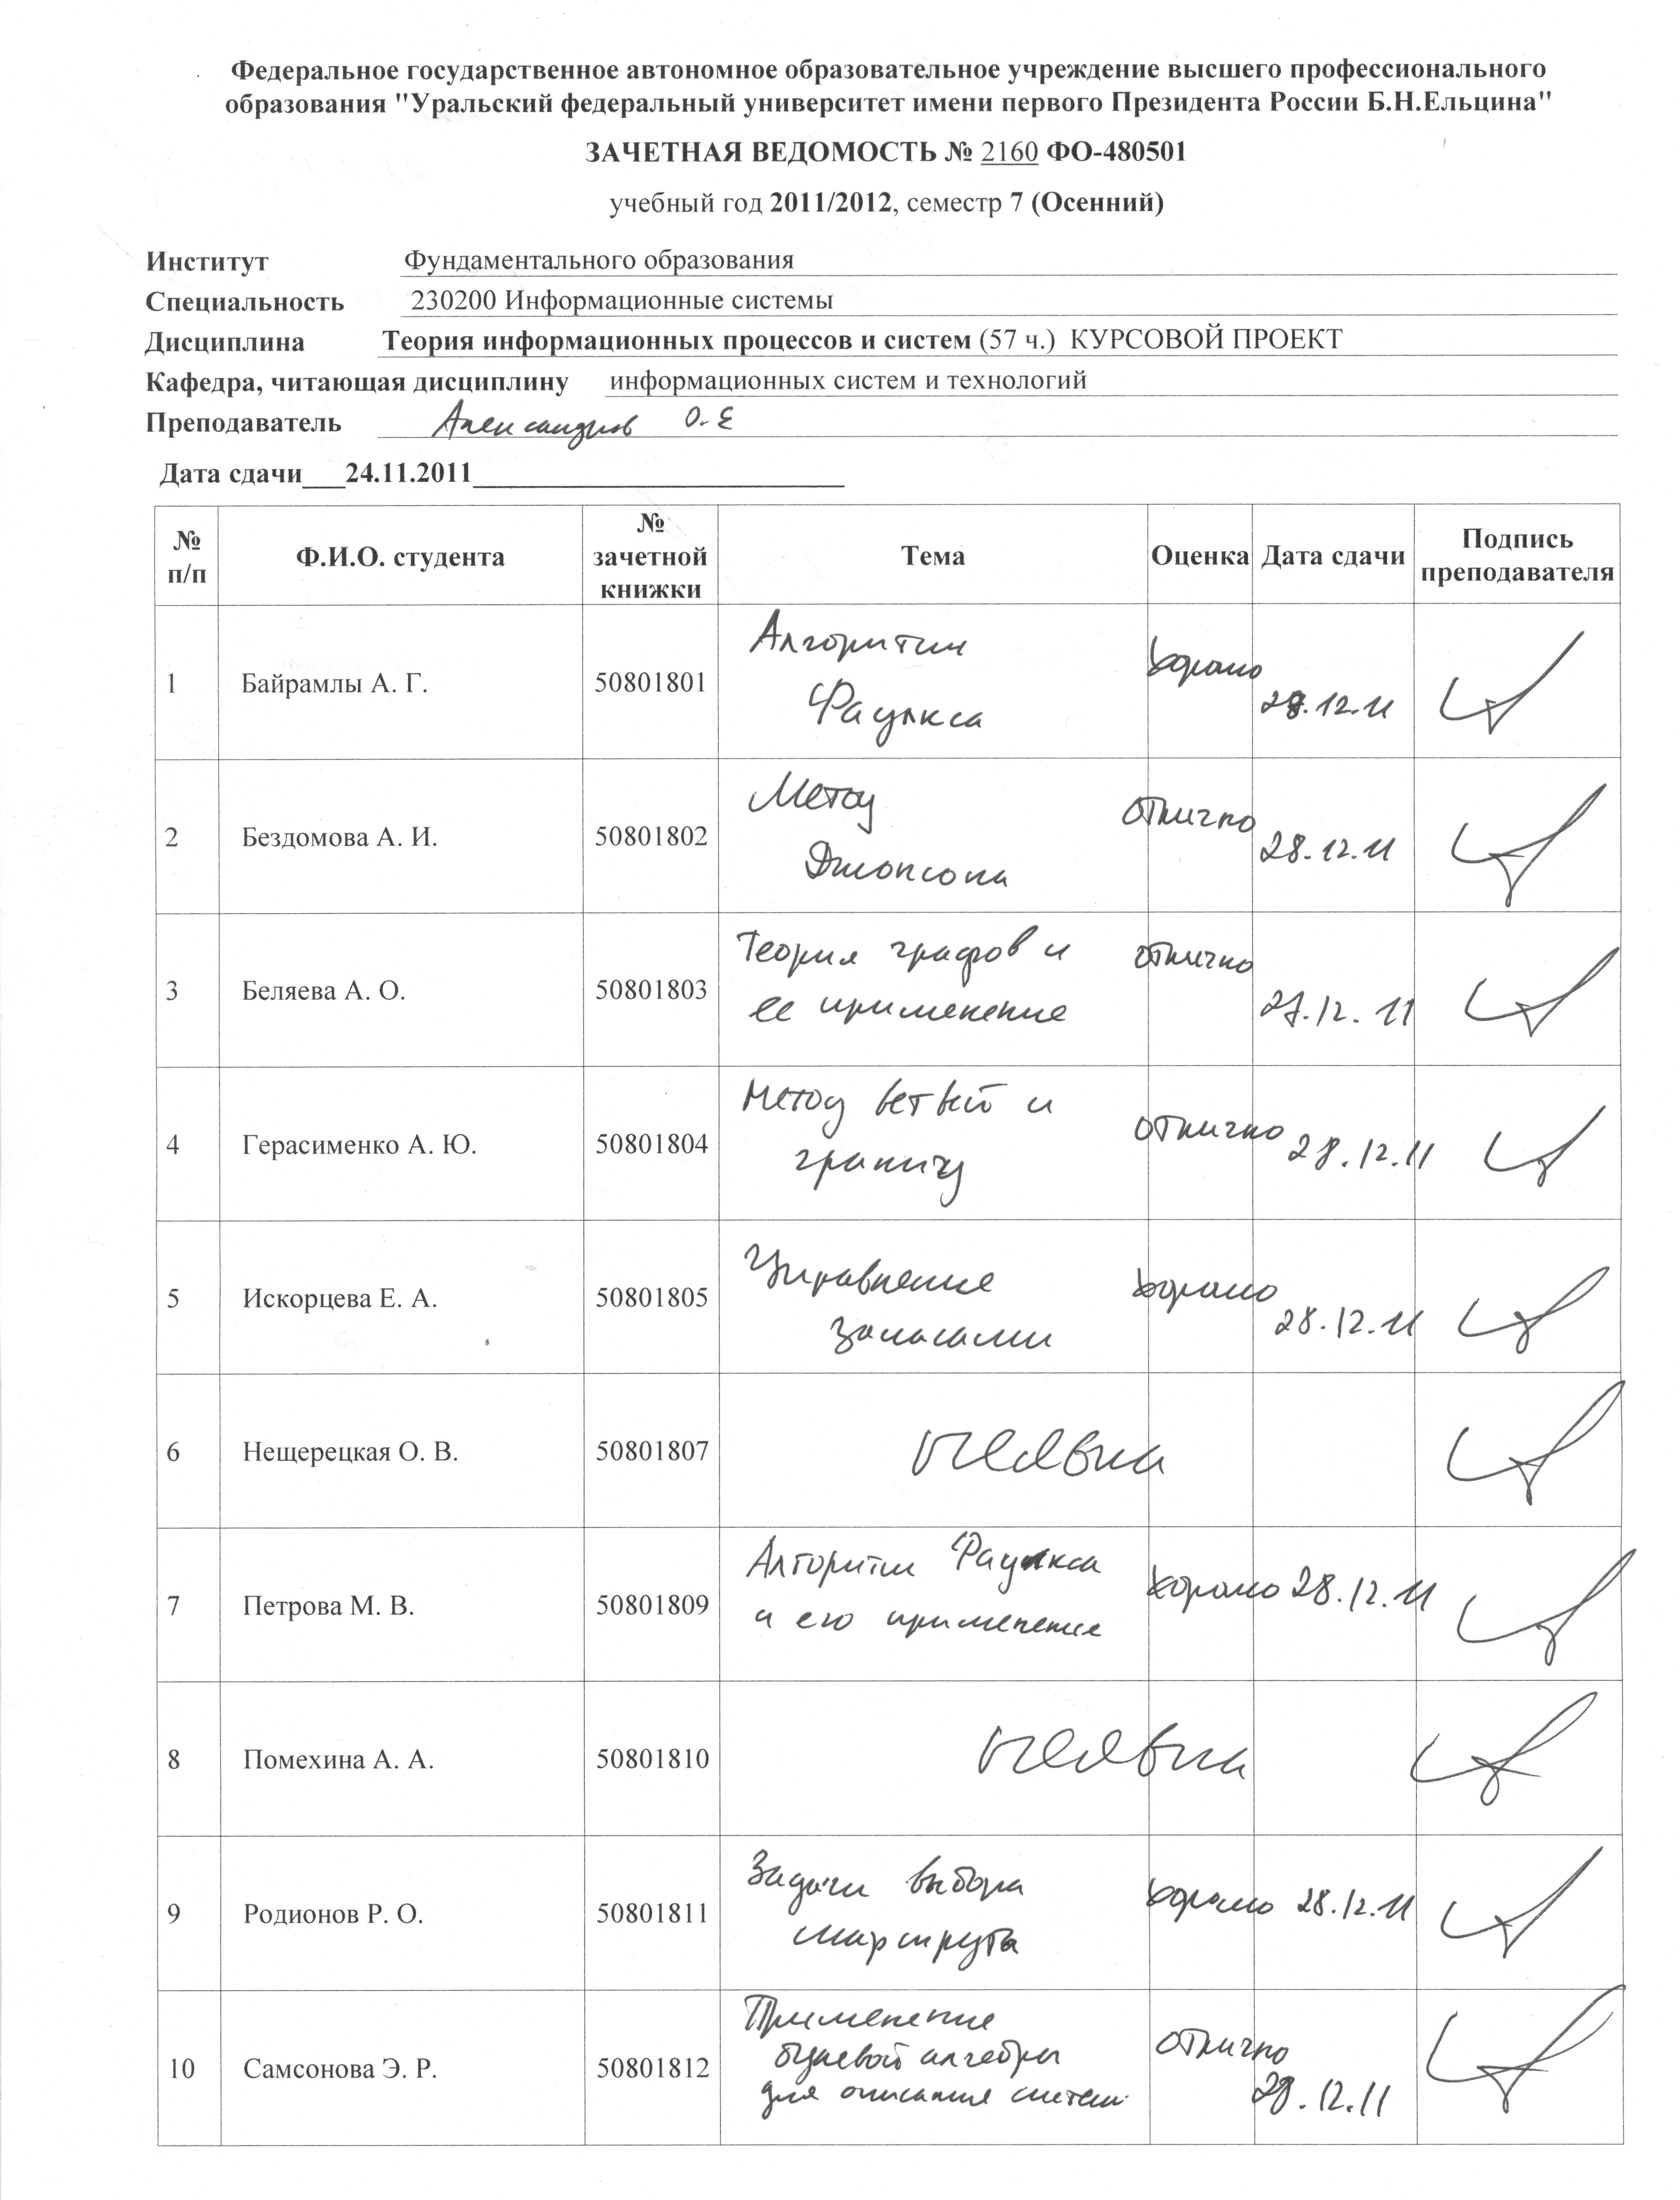 Федеральное государственное автономное образовательное учреждение высшего профессионального
образования "Уральский федеральный университет имени первого Президента России Б.Н.Ельцина"
ЗАЧЕТНАЯ ВЕДОМОСТЬ № 2160 ФО-480501
учебный год 2011/2012, семестр 7 (Осенний)
Институт Фундаментального образования
Специальность 230200 Информационные системы
Дисциплина Теория информационных процессов и систем (57 ч.) КУРСОВОЙ ПРОЕКТ
Кафедра, читающая дисциплину информационных систем и технологий
Преподаватель Александров О.Е
Дата сдачи___24.11.2011
№ п/п Ф.И.О. студента № зачетной книжки Тема Оценка Дата сдачи Подпись преподавателя
1 Байрамлы А. Г. 50801801 Алгоритм хорошо
Фаулкса 28.12.11
2 Бездомова А. И. 50801802 Метод отлично
Джонсона 28.12.11
3 Беляева А. О. 50801803 Теория графов и отлично
ее применение 27.12.11
4 Герасименко А. Ю. 50801804 Метод ветвей и отлично
границ 28.12.11
5 Искорцева Е. А. 50801805 Управление хорошо
запасами 28.12.11
6 Нещерецкая О. В. 50801807 неявка
7 Петрова М. В. 50801809 Алгоритм Фаулкса хорошо 28.12.11
и его применение
8 Помехина А. А. 50801810 неявка
9 Родионов Р. О. 50801811 Задачи выбора хорошо 28.12.11
маршрута
10 Самсонова Э. Р. 50801812 Применение отлично
булевой алгебры
для описания систем 28.12.11